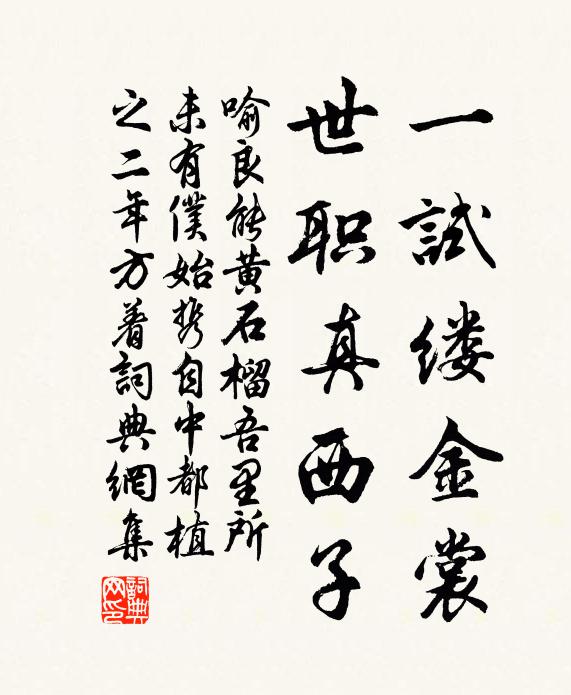 一試缕金裳
世职真西子
喻良能黄石榴吾里所
未有僕始携自中都植
之二年方着詞典網集
詞典網印